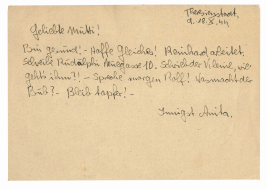 Theresienstadt,
d. 18.X.44
Geliebte Mutti!
Bin gesund! - Hoffe Gleiches! Reinhard arbeitet.
Schreibe Rudolphi Neugasse 10. Schreib der Vilene, wie
geht's ihm?! - Spreche morgen Rolf! Was macht der
Bub? - Bleib tapfer! -
Innigst Anita.